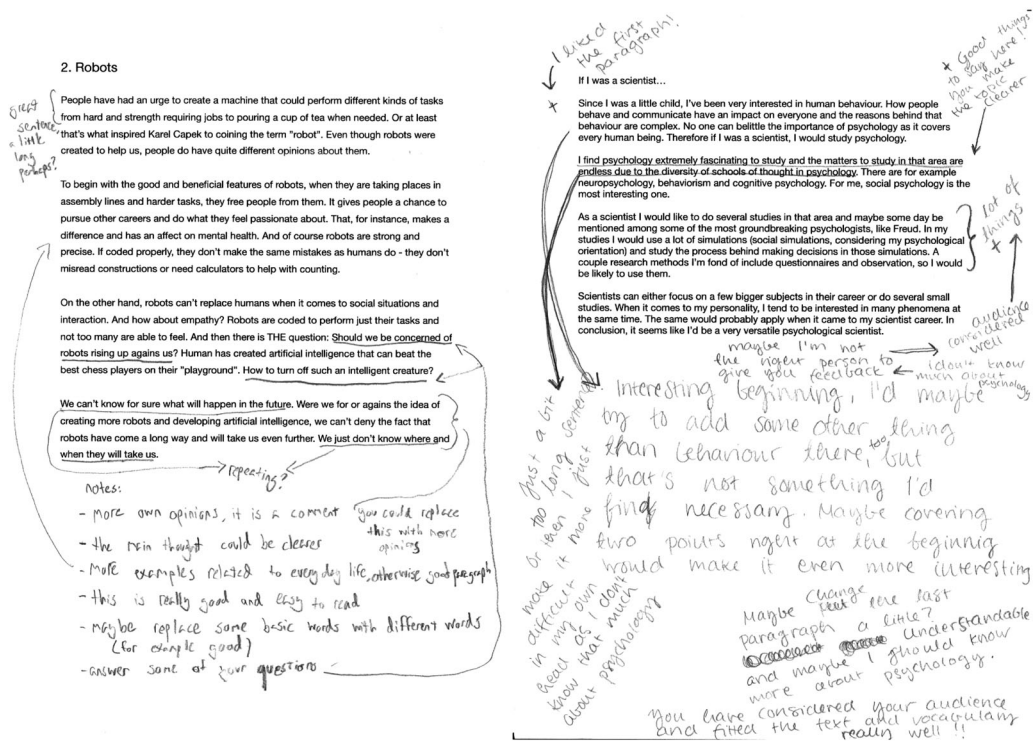 2. Robots
great
sentence,
a little
long
perhaps?
People have had an urge to create a machine that could perform different kinds of tasks
from hard and strength requiring jobs to pouring a cup of tea when needed. Or at least
that's what inspired Karel Capek to coining the term "robot". Even though robots were
created to help us, people do have quite different opinions about them.
To begin with the good and beneficial features of robots, when they are taking places in
assembly lines and harder tasks, they free people from them. It gives people a chance to
pursue other careers and do what they feel passionate about. That, for instance, makes a
difference and has an affect on mental health. And of course robots are strong and
precise. If coded properly, they don't make the same mistakes as humans do - they don't
misread constructions or need calculators to help with counting.
On the other hand, robots can't replace humans when it comes to social situations and
interaction. And how about empathy? Robots are coded to perform just their tasks and
not too many are able to feel. And then there is THE question: Should we be concerned of
robots rising up agains us? Human has created artificial intelligence that can beat the
best chess players on their "playground". How to turn off such an intelligent creature?
We can't know for sure what will happen in the future. Were we for or agains the idea of
creating more robots and developing artificial intelligence, we can't deny the fact that
robots have come a long way and will take us even further. We just don't know where and
when they will take us.
repeating?
notes:
- more own opinions, it is a comment
you could replace
this with more
opinions
- the main thought could be clearer
- More examples related to every day life, otherwise good paragraph
- this is really good and easy to read
- maybe replace some basic words with different words
(for example good)
- answer some of your questions
I liked
the first
paragraph!
If I was a scientist...
Since I was a little child, I've been very interested in human behaviour. How people
behave and communicate have an impact on everyone and the reasons behind that
behaviour are complex. No one can belittle the importance of psychology as it covers
every human being. Therefore if I was a scientist, I would study psychology.
Good things
to say here!
You make
the topic
clearer
I find psychology extremely fascinating to study and the matters to study in that area are
endless due to the diversity of schools of thought in psychology. There are for example
neuropsychology, behaviorism and cognitive psychology. For me, social psychology is the
most interesting one.
As a scientist I would like to do several studies in that area and maybe some day be
mentioned among some of the most groundbreaking psychologists, like Freud. In my
studies I would use a lot of simulations (social simulations, considering my psychological
orientation) and study the process behind making decisions in those simulations. A
couple research methods I'm fond of include questionnaires and observation, so I would
be likely to use them.
lot of
things
Scientists can either focus on a few bigger subjects in their career or do several small
studies. When it comes to my personality, I tend to be interested in many phenomena at
the same time. The same would probably apply when it came to my scientist career. In
conclusion, it seems like I'd be a very versatile psychological scientist.
audience
considered
well
maybe I'm not
the right person to
give you feedback
i don't know
much about
psychology
Interesting beginning, I'd maybe
try to add some other thing
than behaviour there, too, but
that's not something I'd
find necessary. Maybe covering
two points right at the beginnig
would make it even more interesting
Just a bit
too long sentence
or then I just
make it more
difficult
in my own
head as I don't
know that much
about psychology
Maybe change here last
paragraph a little?
understandable
and maybe I should know
more about psychology.
You have considered your audience
and fitted the text and vocabulary
really well!!